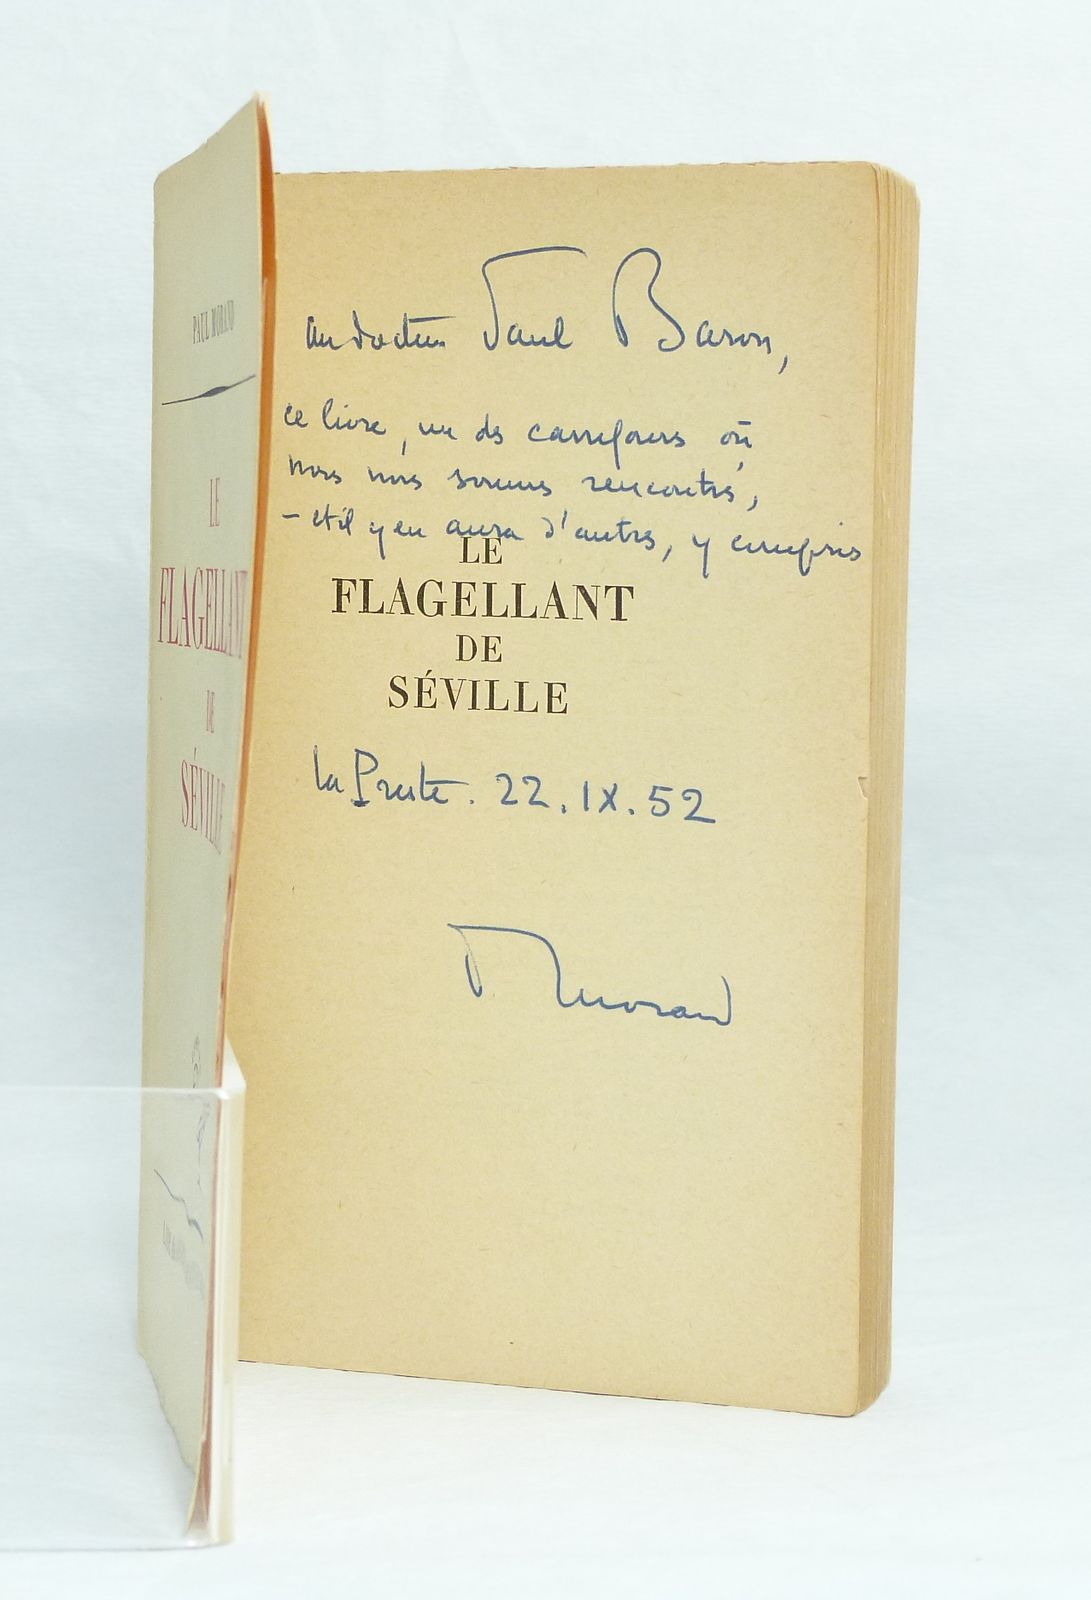 PAUL MORAND
LE
FLAGELLANT
DE
SÉVILLE
au docteur Paul Baron,
ce livre, un des carrefours où
nous nous sommes rencontrés,
– et il y en aura d'autres, y compris
LE
FLAGELLANT
DE
SÉVILLE
la Preste. 22.IX.52
P Morand